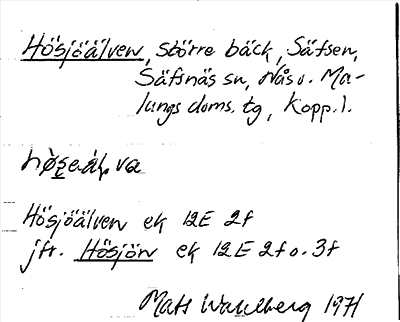 Hösjöälven, större bäck, Säfsen,
Säfsnäs sn, Nås o. Ma-
lungs doms. tg, Kopp. l.
Hösjöälven ek 12E 2f
jfr. Hösjön ek 12E 2f o. 3f
Mats Wahlberg 1971